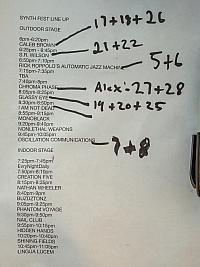 SYNTH FEST LINE UP
OUTDOOR STAGE
17+18+26
6pm-6:20pm
CALEB BROWN
6:25pm - 6:45pm
S.R. WILSON
21+22
6:50pm-7:10pm
RICK ROPPOLO'S AUTOMATIC JAZZ MACHINE
5+6
7:15pm-7:35pm
TBA
7:40pm-8pm
CHROMA PHASE
Alex-27+28
8:05pm-8:25pm
GLASSY EYE
8:30pm-8:50pm
19+20+25
I AM NOT DEAD
8:55pm-9:15pm
MONOBLACK
9:20pm-9:40pm
NONLETHAL WEAPONS
9:45pm-10:05pm
OSCILLATION COMMUNICATIONS
7+8
INDOOR STAGE
7:25pm-7:45pm
EvryNightDaily
7:50pm-8:10pm
CREATION FIVE
8:15pm-8:35pm
NATHAN WHEELER
8:40pm-9pm
BUZDZTONZ
9:05pm-9:25pm
PHANTOM VOYAGE
9:30pm-9:50pm
NAIL CLUB
9:55pm-10:15pm
HIDDEN HANDS
10:20pm-10:40pm
SHINING FIELDS
10:45pm-11:05pm
LINGUA LUCEM